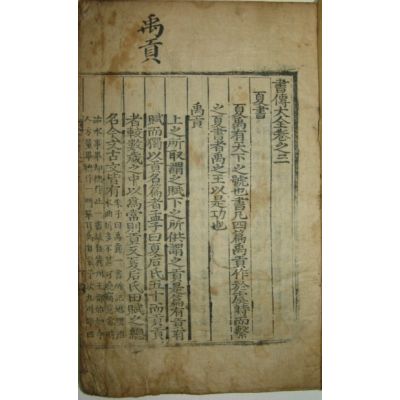 禹貢
書傳大全卷之三
夏書
夏禹有天下之號也書凡四篇禹貢作於虞時而繫
之夏書者禹之王以是功也
禹貢
上之所取謂之賦下之所供謂之貢是篇有貢有
賦而獨以貢名篇者孟子曰夏后氏五十而貢貢
者較數歲之中以爲常則貢又夏后氏田賦之總
名今文古文皆有
朱子曰禹貢一書所記地理治
水曲折多不甚可曉竊意當時